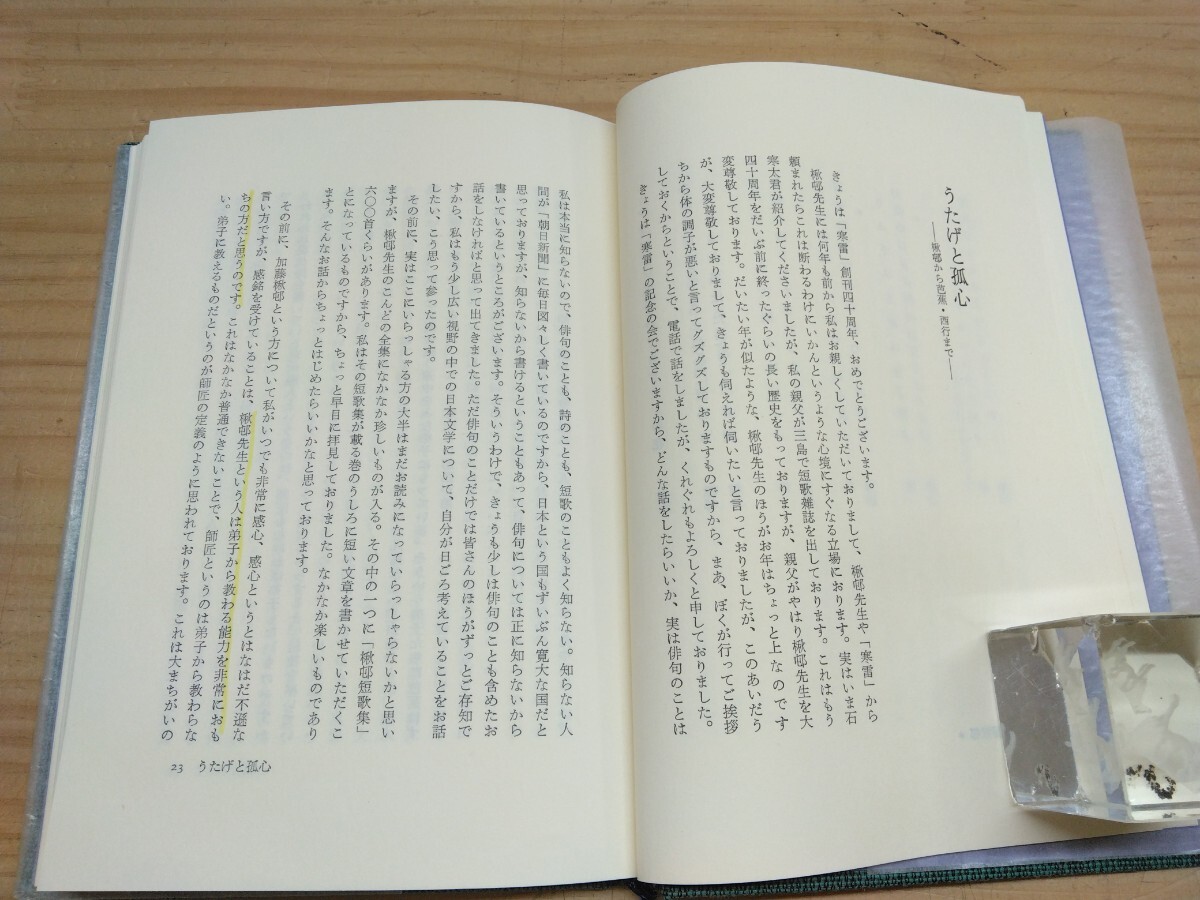 うたげと孤心
――楸邨から芭蕉・西行まで――
きょうは「寒雷」創刊四十周年、おめでとうございます。
楸邨先生には何年も前から私はお親しくしていただいておりまして、楸邨先生や「寒雷」から
頼まれたらこれは断わるわけにいかんというような心境にすぐなる立場におります。実はいま石
寒太君が紹介してくださいましたが、私の親父が三島で短歌雑誌を出しております。これはもう
四十周年をだいぶ前に終ったぐらいの長い歴史をもっておりますが、親父がやはり楸邨先生を大
変尊敬しております。だいたい年が似たような、楸邨先生のほうがお年はちょっと上なのです
が、大変尊敬しておりまして、きょうも伺えれば伺いたいと言っておりましたが、このあいだう
ちから体の調子が悪いと言ってグズグズしておりますものですから、まあ、ぼくが行ってご挨拶
しておくからということで、電話で話をしましたが、くれぐれもよろしくと申しておりました。
きょうは「寒雷」の記念の会でございますから、どんな話をしたらいいか、実は俳句のことは
私は本当に知らないので、俳句のことも、詩のことも、短歌のこともよく知らない。知らない人
間が「朝日新聞」に毎日図々しく書いているのですから、日本という国もずいぶん寛大な国だと
思っておりますが、知らないから書けるということもあって、俳句については正に知らないから
書いているというところがございます。そういうわけで、きょうも少しは俳句のことも含めたお
話をしなければと思って出てきました。ただ俳句のことだけでは皆さんのほうがずっとご存知で
すから、私はもう少し広い視野の中での日本文学について、自分が日ごろ考えていることをお話
したい、こう思って参ったのです。
その前に、実はここにいらっしゃる方の大半はまだお読みになっていらっしゃらないかと思い
ますが、楸邨先生のこんどの全集になかなか珍しいものが入る。その中の一つに「楸邨短歌集」
六〇〇首くらいがあります。私はその短歌集が載る巻のうしろに短い文章を書かせていただくこ
とになっているものですから、ちょっと早目に拝見しておりました。なかなか楽しいものであり
ます。そんなお話からちょっとはじめたらいいかなと思っております。
その前に、加藤楸邨という方について私がいつでも非常に感心、感心というとはなはだ不遜な
言い方ですが、感銘を受けていることは、楸邨先生という人は弟子から教わる能力を非常におも
ちの方だと思うのです。これはなかなか普通できないことで、師匠というのは弟子から教わらな
い。弟子に教えるものだというのが師匠の定義のように思われております。これは大まちがいの
23 うたげと孤心